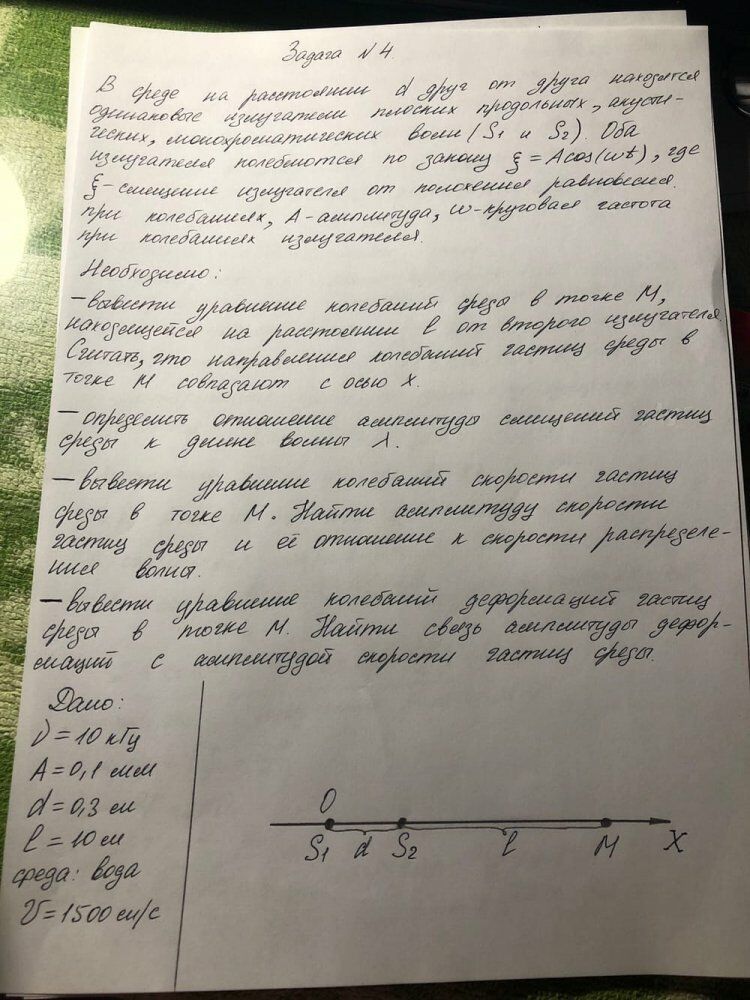 Задача N 4.
В среде на расстоянии d друг от друга находятся
одинаковые излучатели плоских продольных, акусти-
ческих, монохроматических волн (S1 и S2). Оба
излучателя колеблются по закону ξ = Acos(ωt), где
ξ - смещение излучателя от положения равновесия
при колебаниях, A - амплитуда, ω - круговая частота
при колебаниях излучателя.
Необходимо:
— вывести уравнение колебаний среды в точке M,
находящейся на расстоянии l от второго излучателя.
Считать, что направления колебаний частиц среды в
точке M совпадают с осью X.
— определить отношение амплитуды смещений частиц
среды к длине волны λ.
— вывести уравнение колебаний скорости частиц
среды в точке M. Найти амплитуду скорости
частиц среды и её отношение к скорости распределе-
ния волны.
— вывести уравнение колебаний деформаций частиц
среды в точке M. Найти связь амплитуды дефор-
маций с амплитудой скорости частиц среды.
Дано:
ν = 10 кГц
A = 0,1 мм
d = 0,3 м
l = 10 м
среда: вода
V = 1500 м/с
O
S1 d S2 l M X